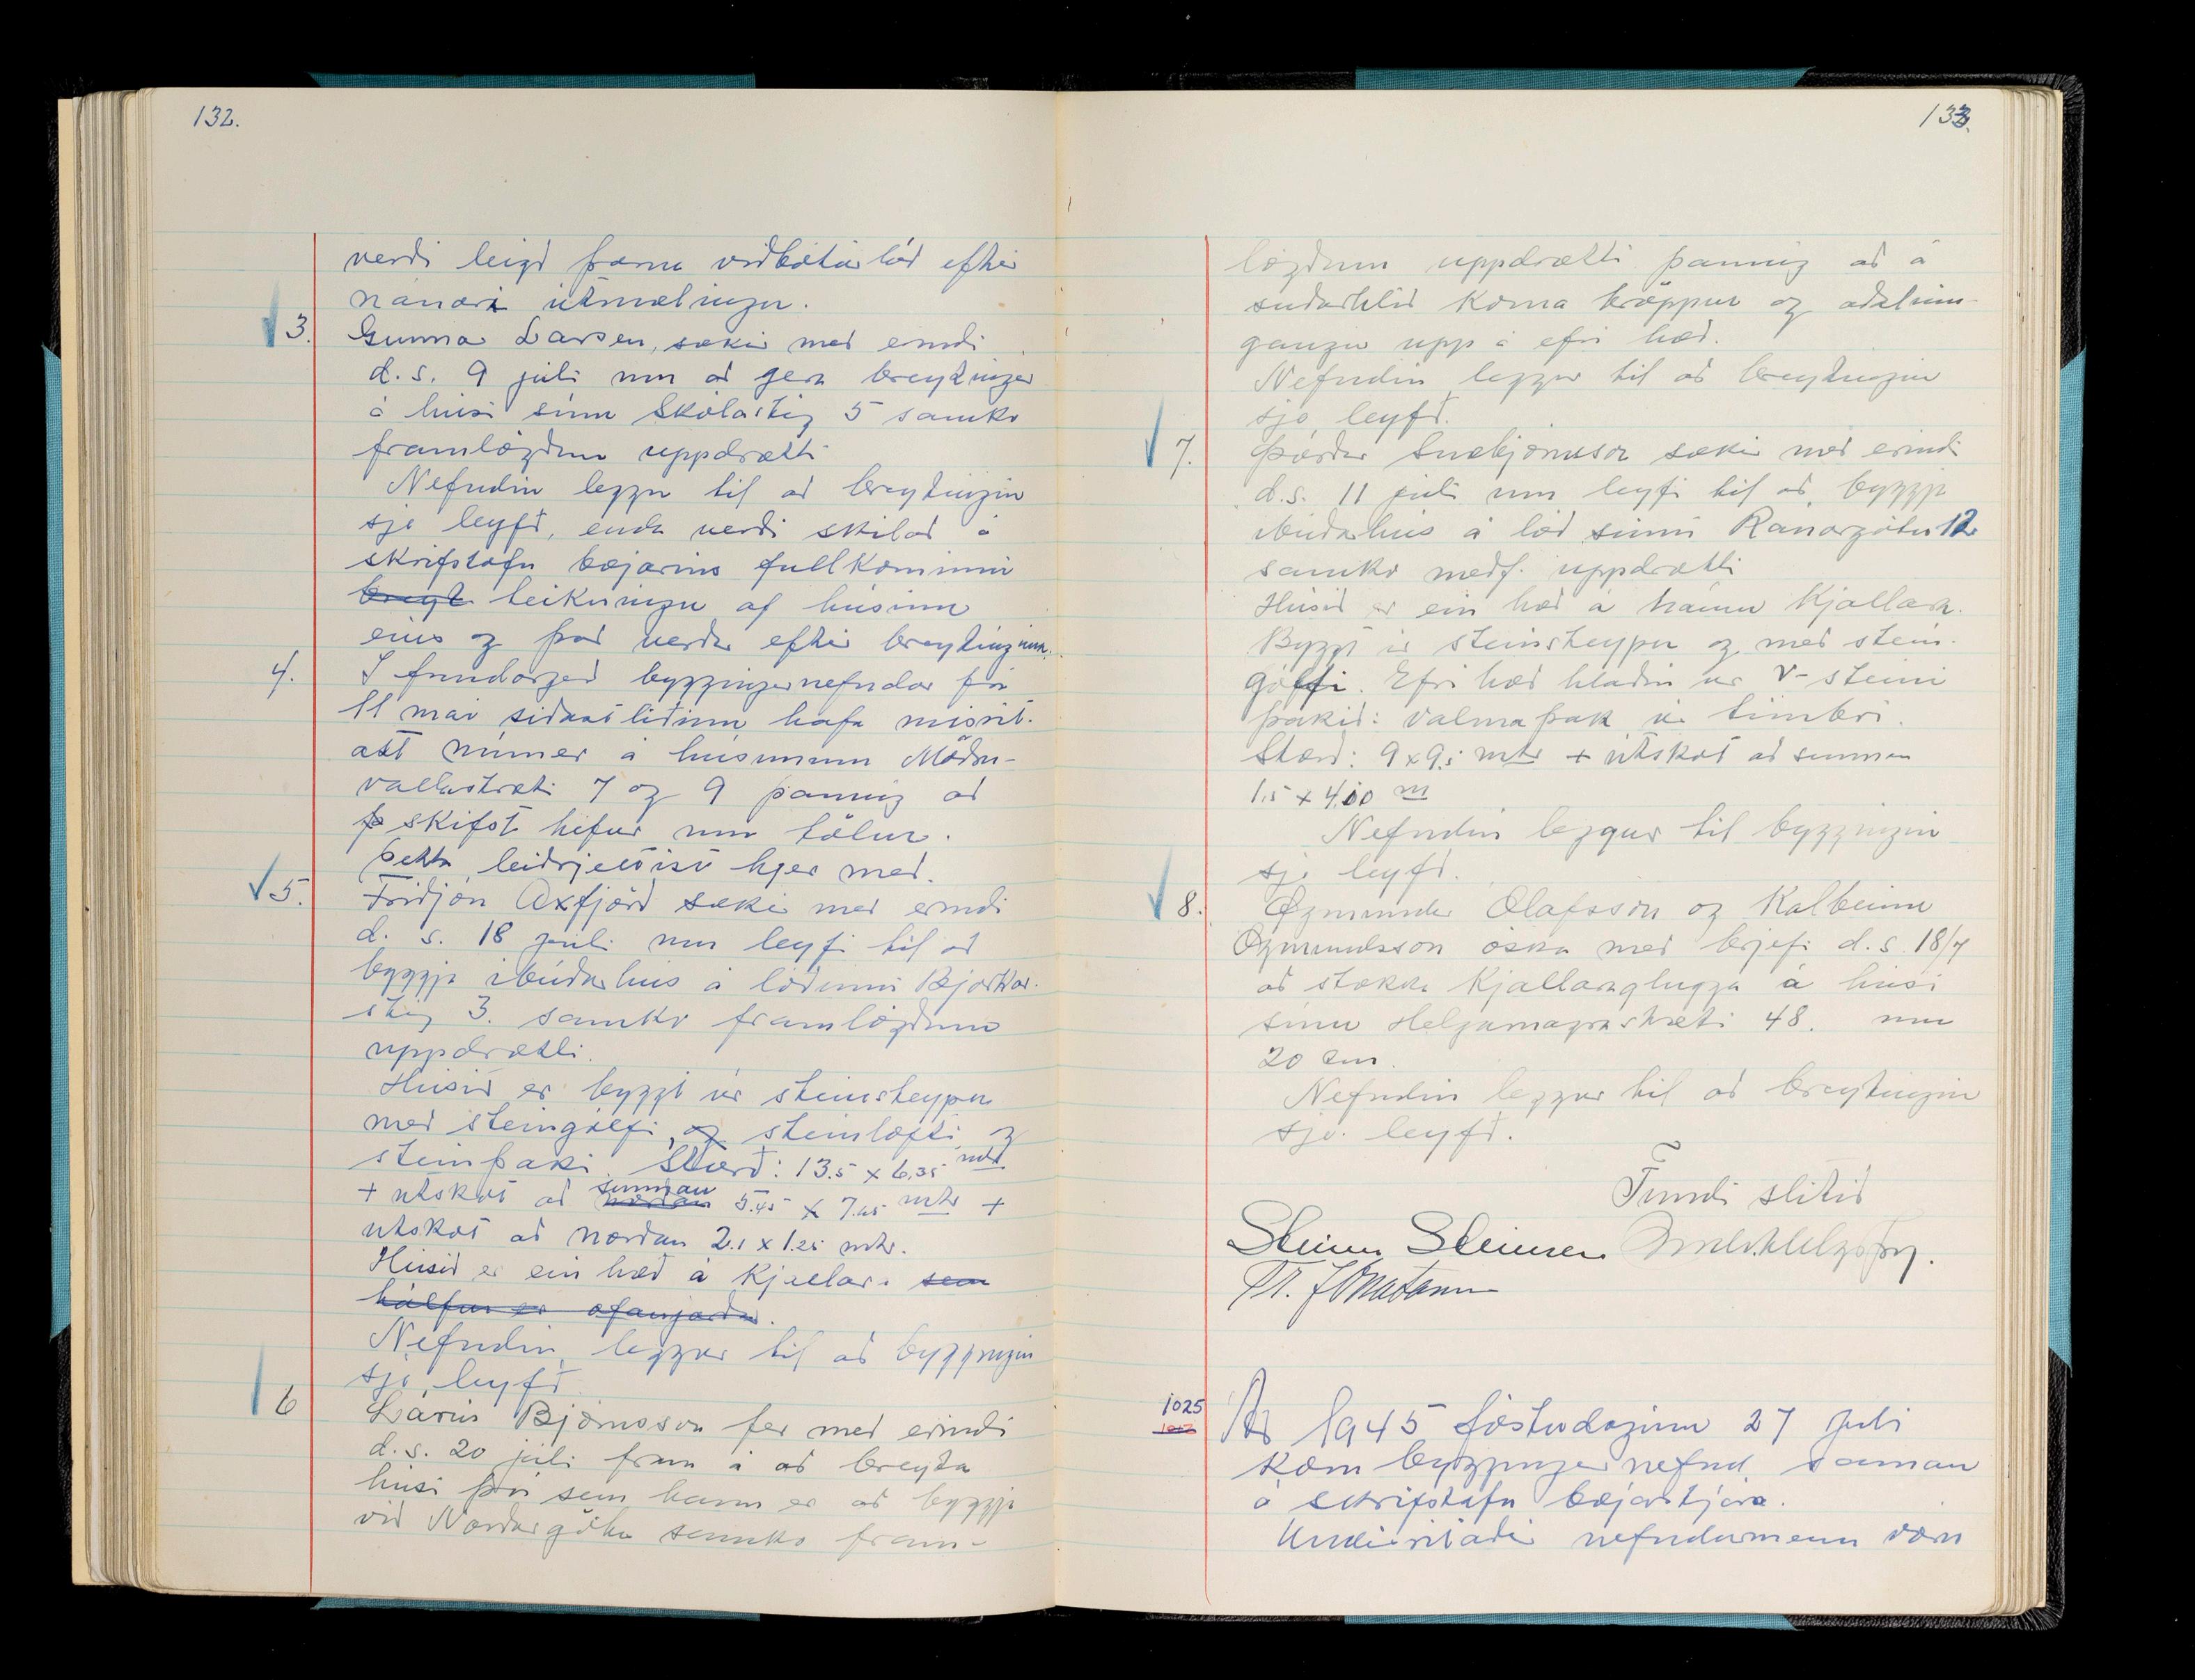 132.
verði leigð þarna viðbótarlóð eftir
nánari útmælingu.
3. Gunnar Larsen, sækir með erindi
d.s. 9 júli um að gera breytingar
á húsi sínu Skólastíg 5 samkv
framlögðum uppdrætti
Nefndin leggur til að breytingin
sje leyfð, enda verði skilað á
skrifstofu bæjarins fullkominni
breyt teikningu af húsinu
eins og það verður eftir breytinguna.
4. I fundargerð byggingarnefndar frá
11 maí siðastliðinn hafa misrit-
ast númer á húsunum Möðru-
vallastræti 7 og 9 þannig að
þ skifst hefur um tölur.
Þetta leiðrjettist hjer með.
5. Friðjón Axfjörð sækir með erindi
d. s. 18 júli um leyfi til að
byggja íbúðarhús á lóðinni Bjarkar-
stíg 3. samkv framlögðum
uppdrætti.
Húsið er byggt úr steinsteypu
með steingólfi, og steinlofti og
steinþaki. Stærð: 13.5 x 6.35 mtr
+ útskot að norðan sunnan 5.45 x 7.65 mtr +
útskot að norðan 2.1 x 1.25 mtr.
Húsið er ein hæð á kjallara sem
hálfur er ofanjarðar.
Nefndin leggur til að byggingin
sje leyfð
6 Lárus Björnsson fer með erindi
d.s. 20 júli fram á að breyta
húsi því sem hann er að byggja
við Norðurgötu samkv fram-
133.
lögðum uppdrætti þannig að á
suðurhlið koma tröppur og aðalinn-
gangur upp á efri hæð.
Nefndin leggur til að breytingin
sje leyfð.
7. Þórður Snæbjörnsson sækir með erindi
d.s. 11 júli um leyfi til að byggja
íbúðarhús á lóð sinni Ránargötu 12
samkv meðf. uppdrætti
Húsið er ein hæð á háum kjallara.
Byggt úr steinsteypu og með stein-
gólfi. Efri hæð hlaðin úr V-steini
þakið: valmaþak úr timbri.
Stærð: 9 x 9.5 mtr + útskot að sunnan
1.5 x 4.00 m
Nefndin leggur til byggingin
sje leyfð.
8. Ögmundur Ólafsson og Kolbeinn
Ögmundsson óska með brjefi d.s. 18/7
að stækka kjallaraglugga á húsi
sínu Helgamagrastræti 48. um
20 cm.
Nefndin leggur til að breytingin
sje leyfð.
Fundi slitið
Steinn Steinsen
1025
1013
Ár 1945 föstudaginn 27 júli
kom byggingarnefnd saman
á skrifstofu bæjarstjóra.
Undirritaðir nefndarmenn voru